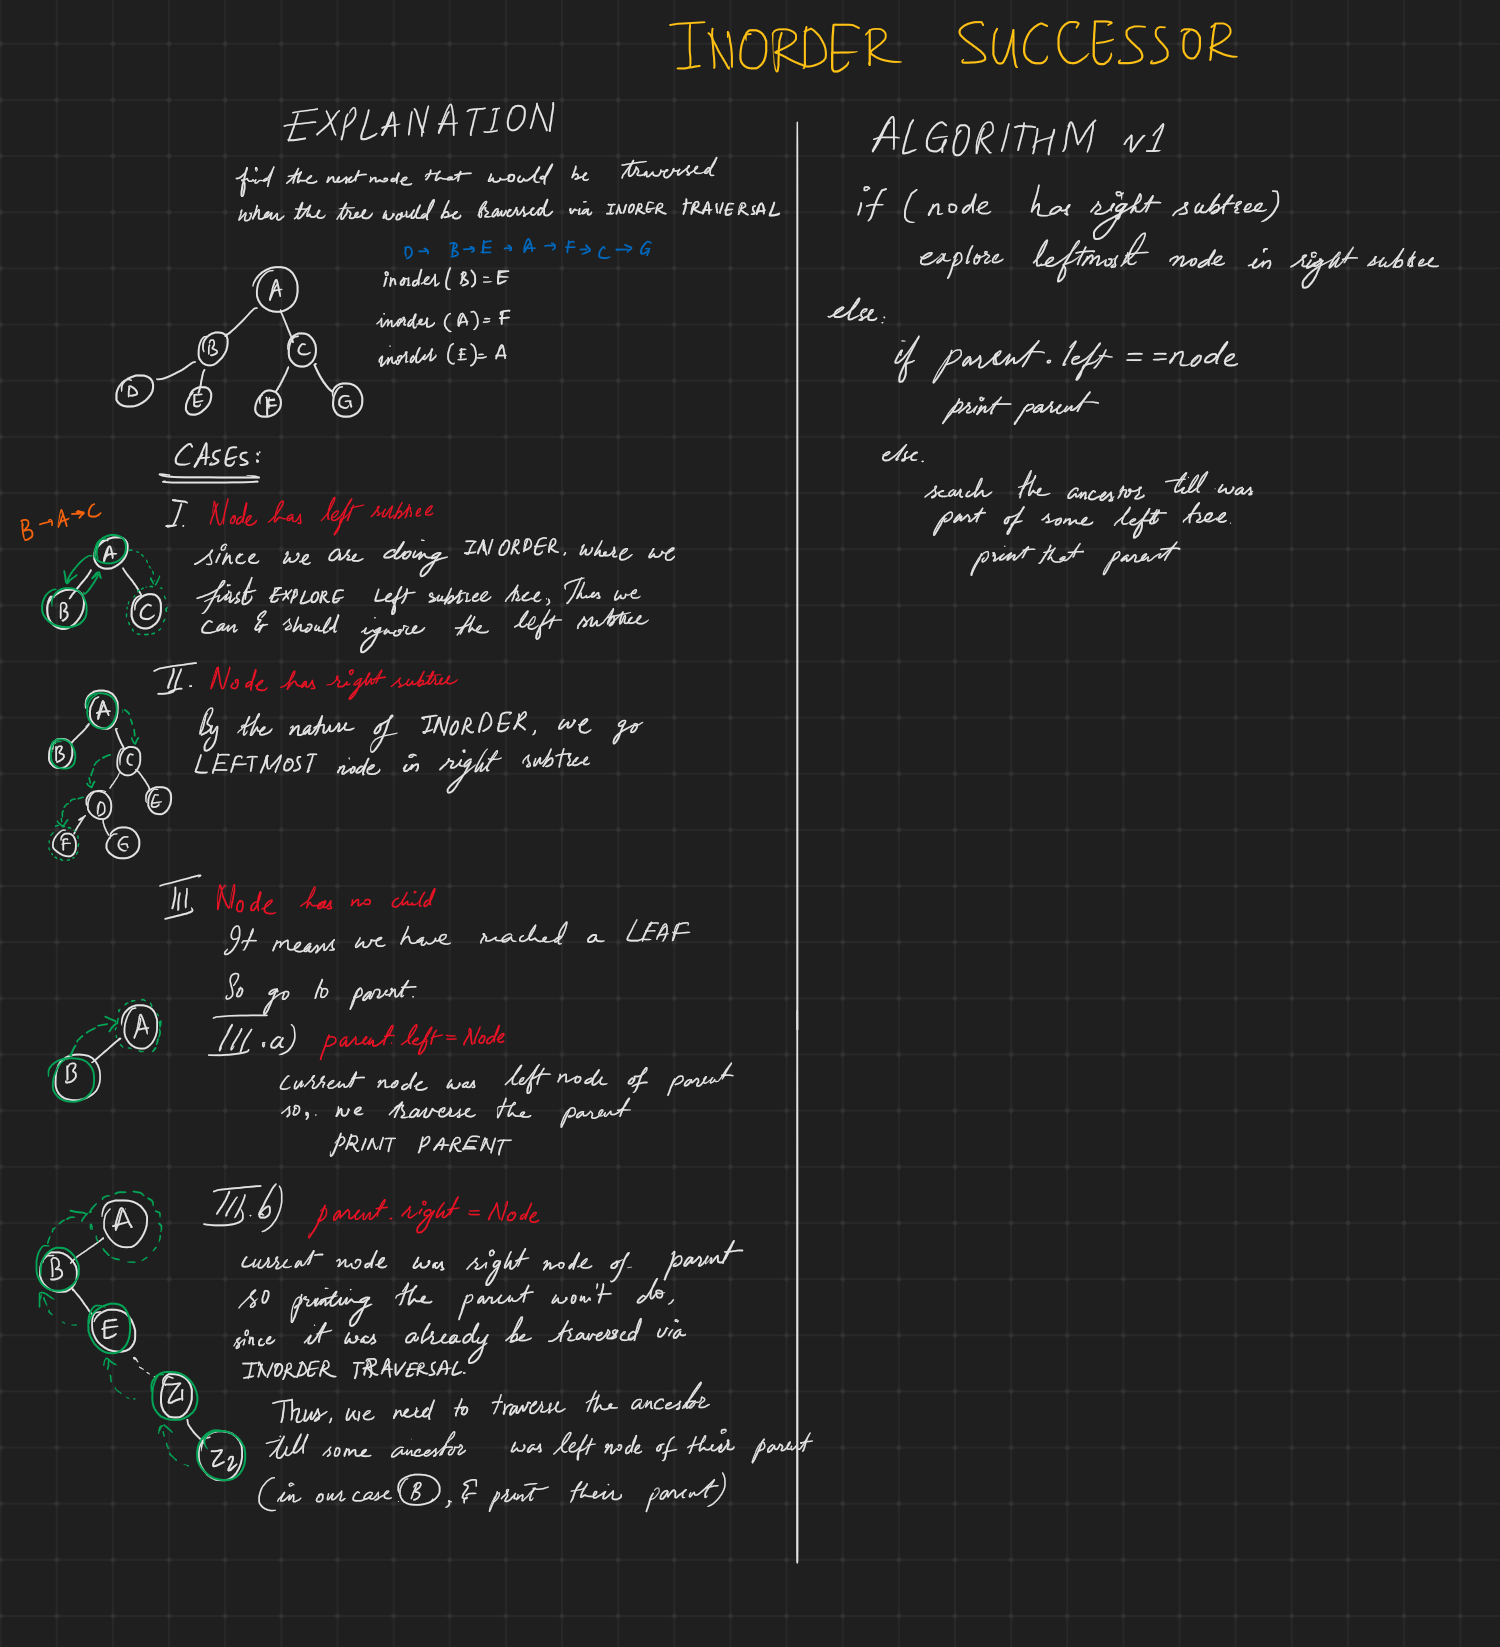 INORDER SUCCESSOR
EXPLANATION
find the next node that would be traversed
when the tree would be traversed via INORER TRAVERSAL
D → B → E → A → F → C → G
inorder (B) = E
inorder (A) = F
inorder (E) = A
A
B
C
D
E
F
G
CASES:
I. Node has left subtree
B → A → C
A
B
C
since we are doing INORDER, where we
first EXPLORE left subtree tree, Thus we
can & should ignore the left subtree
II. Node has right subtree
A
B
C
D
E
F
G
By the nature of INORDER, we go
LEFTMOST node in right subtree
III Node has no child
It means we have reached a LEAF
So go to parent.
A
B
III.a) parent.left = Node
current node was left node of parent
so, we traverse the parent
PRINT PARENT
III.b) parent.right = Node
A
B
E
Z1
Z2
current node was right node of parent
so printing the parent won't do,
since it was already be traversed via
INORDER TRAVERSAL.
Thus, we need to traverse the ancestor
till some ancestor was left node of their parent
(in our case B, & print their parent)
ALGORITHM v1
if (node has right subtree)
explore leftmost node in right subtree
else:
if parent.left == node
print parent
else.
search the ancestor till was
part of some left tree.
print that parent